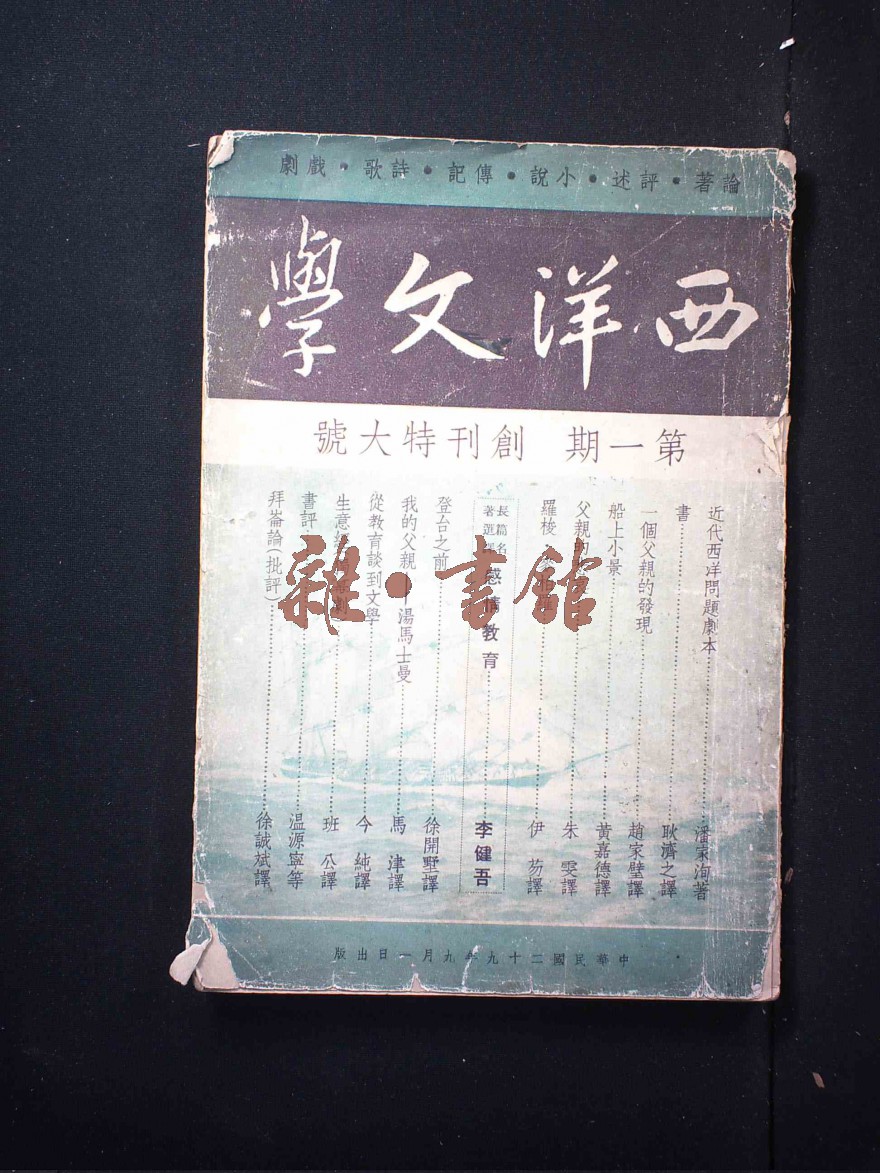 論著•評述•小說•傳記•詩歌•戲劇
西洋文學
第一期 創刊特大號
近代西洋問題劇本……潘家洵著
書……耿濟之譯
一個父親的發現……趙家璧譯
船上小景……黃嘉德譯
父親……朱雯譯
羅梭……伊芬譯
長篇名著選譯 感情教育……李健吾
登台之前……徐開墅譯
我的父親—湯馬士曼……馬津譯
從教育談到文學……今純譯
生意……班公譯
書評……温源寧等
拜崙論(批評)……徐誠斌譯
中華民國二十九年九月一日出版
雜•書館